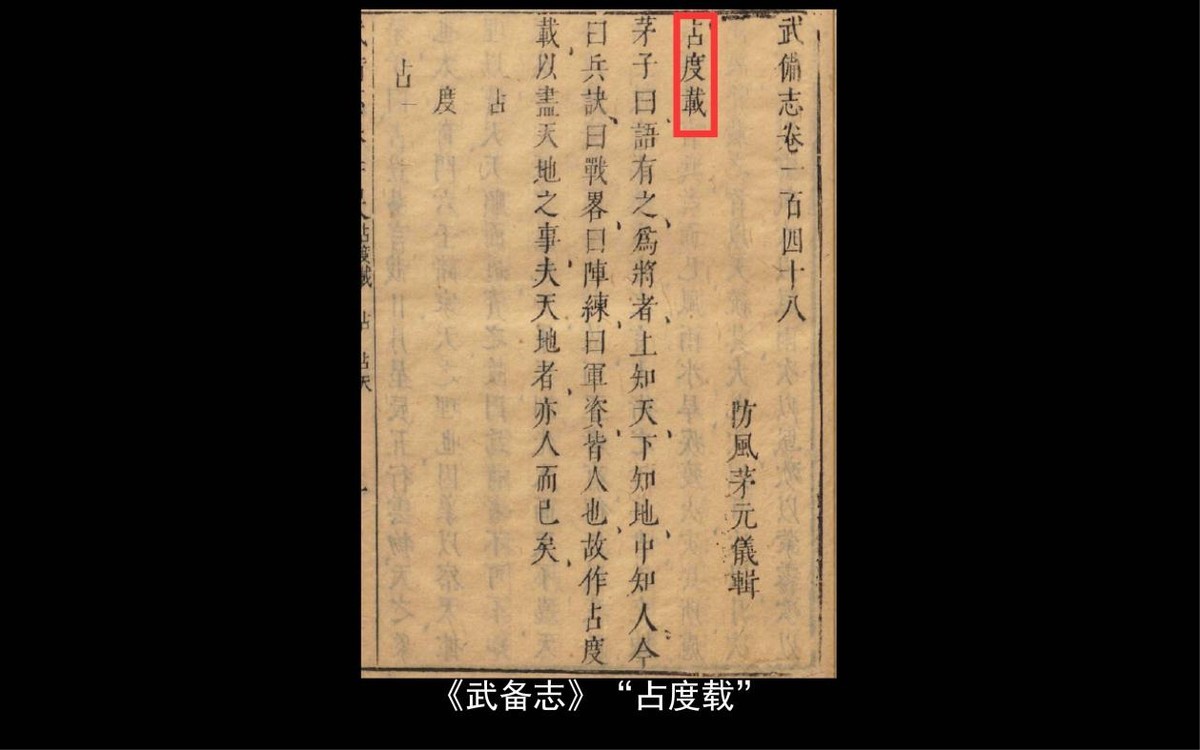 武備志卷一百四十八
防風茅元儀輯
占度載
茅子曰語有之爲將者上知天下知地中知人今
曰兵訣曰戰畧曰陣練曰軍資皆人也故作占度
載以盡天地之事夫天地者亦人而已矣
占
度
占
占度載 占 占天
一
《武备志》“占度载”